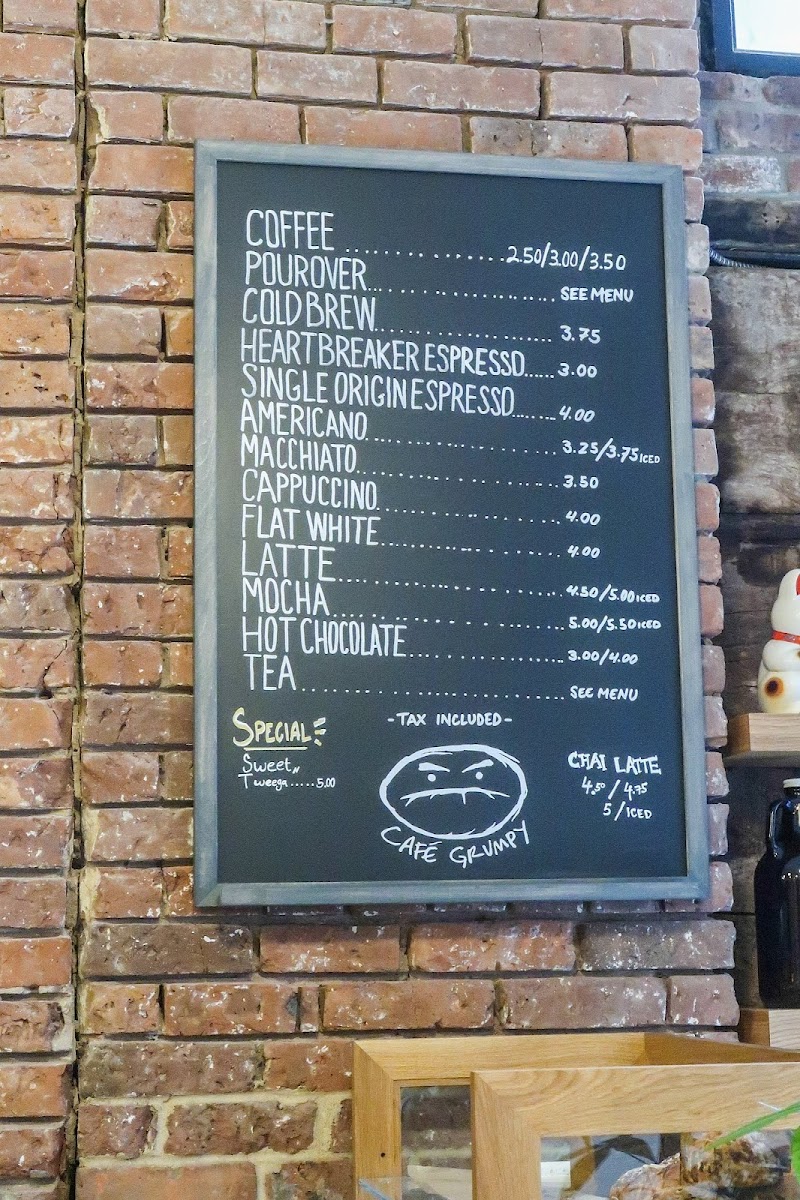 COFFEE .............. 2.50/3.00/3.50
POUROVER .................. SEE MENU
COLD BREW .................. 3.75
HEARTBREAKER ESPRESSO ...... 3.00
SINGLE ORIGIN ESPRESSO ....... 4.00
AMERICANO .................. 3.25/3.75 ICED
MACCHIATO .................. 3.50
CAPPUCCINO .................. 4.00
FLAT WHITE .................. 4.00
LATTE .................. 4.50/5.00 ICED
MOCHA .................. 5.00/5.50 ICED
HOT CHOCOLATE .................. 3.00/4.00
TEA .................. SEE MENU
-TAX INCLUDED-
SPECIAL
Sweet
Tweega.....5.00
CAFÉ GRUMPY
CHAI LATTE
4.50/4.75
5/ICED